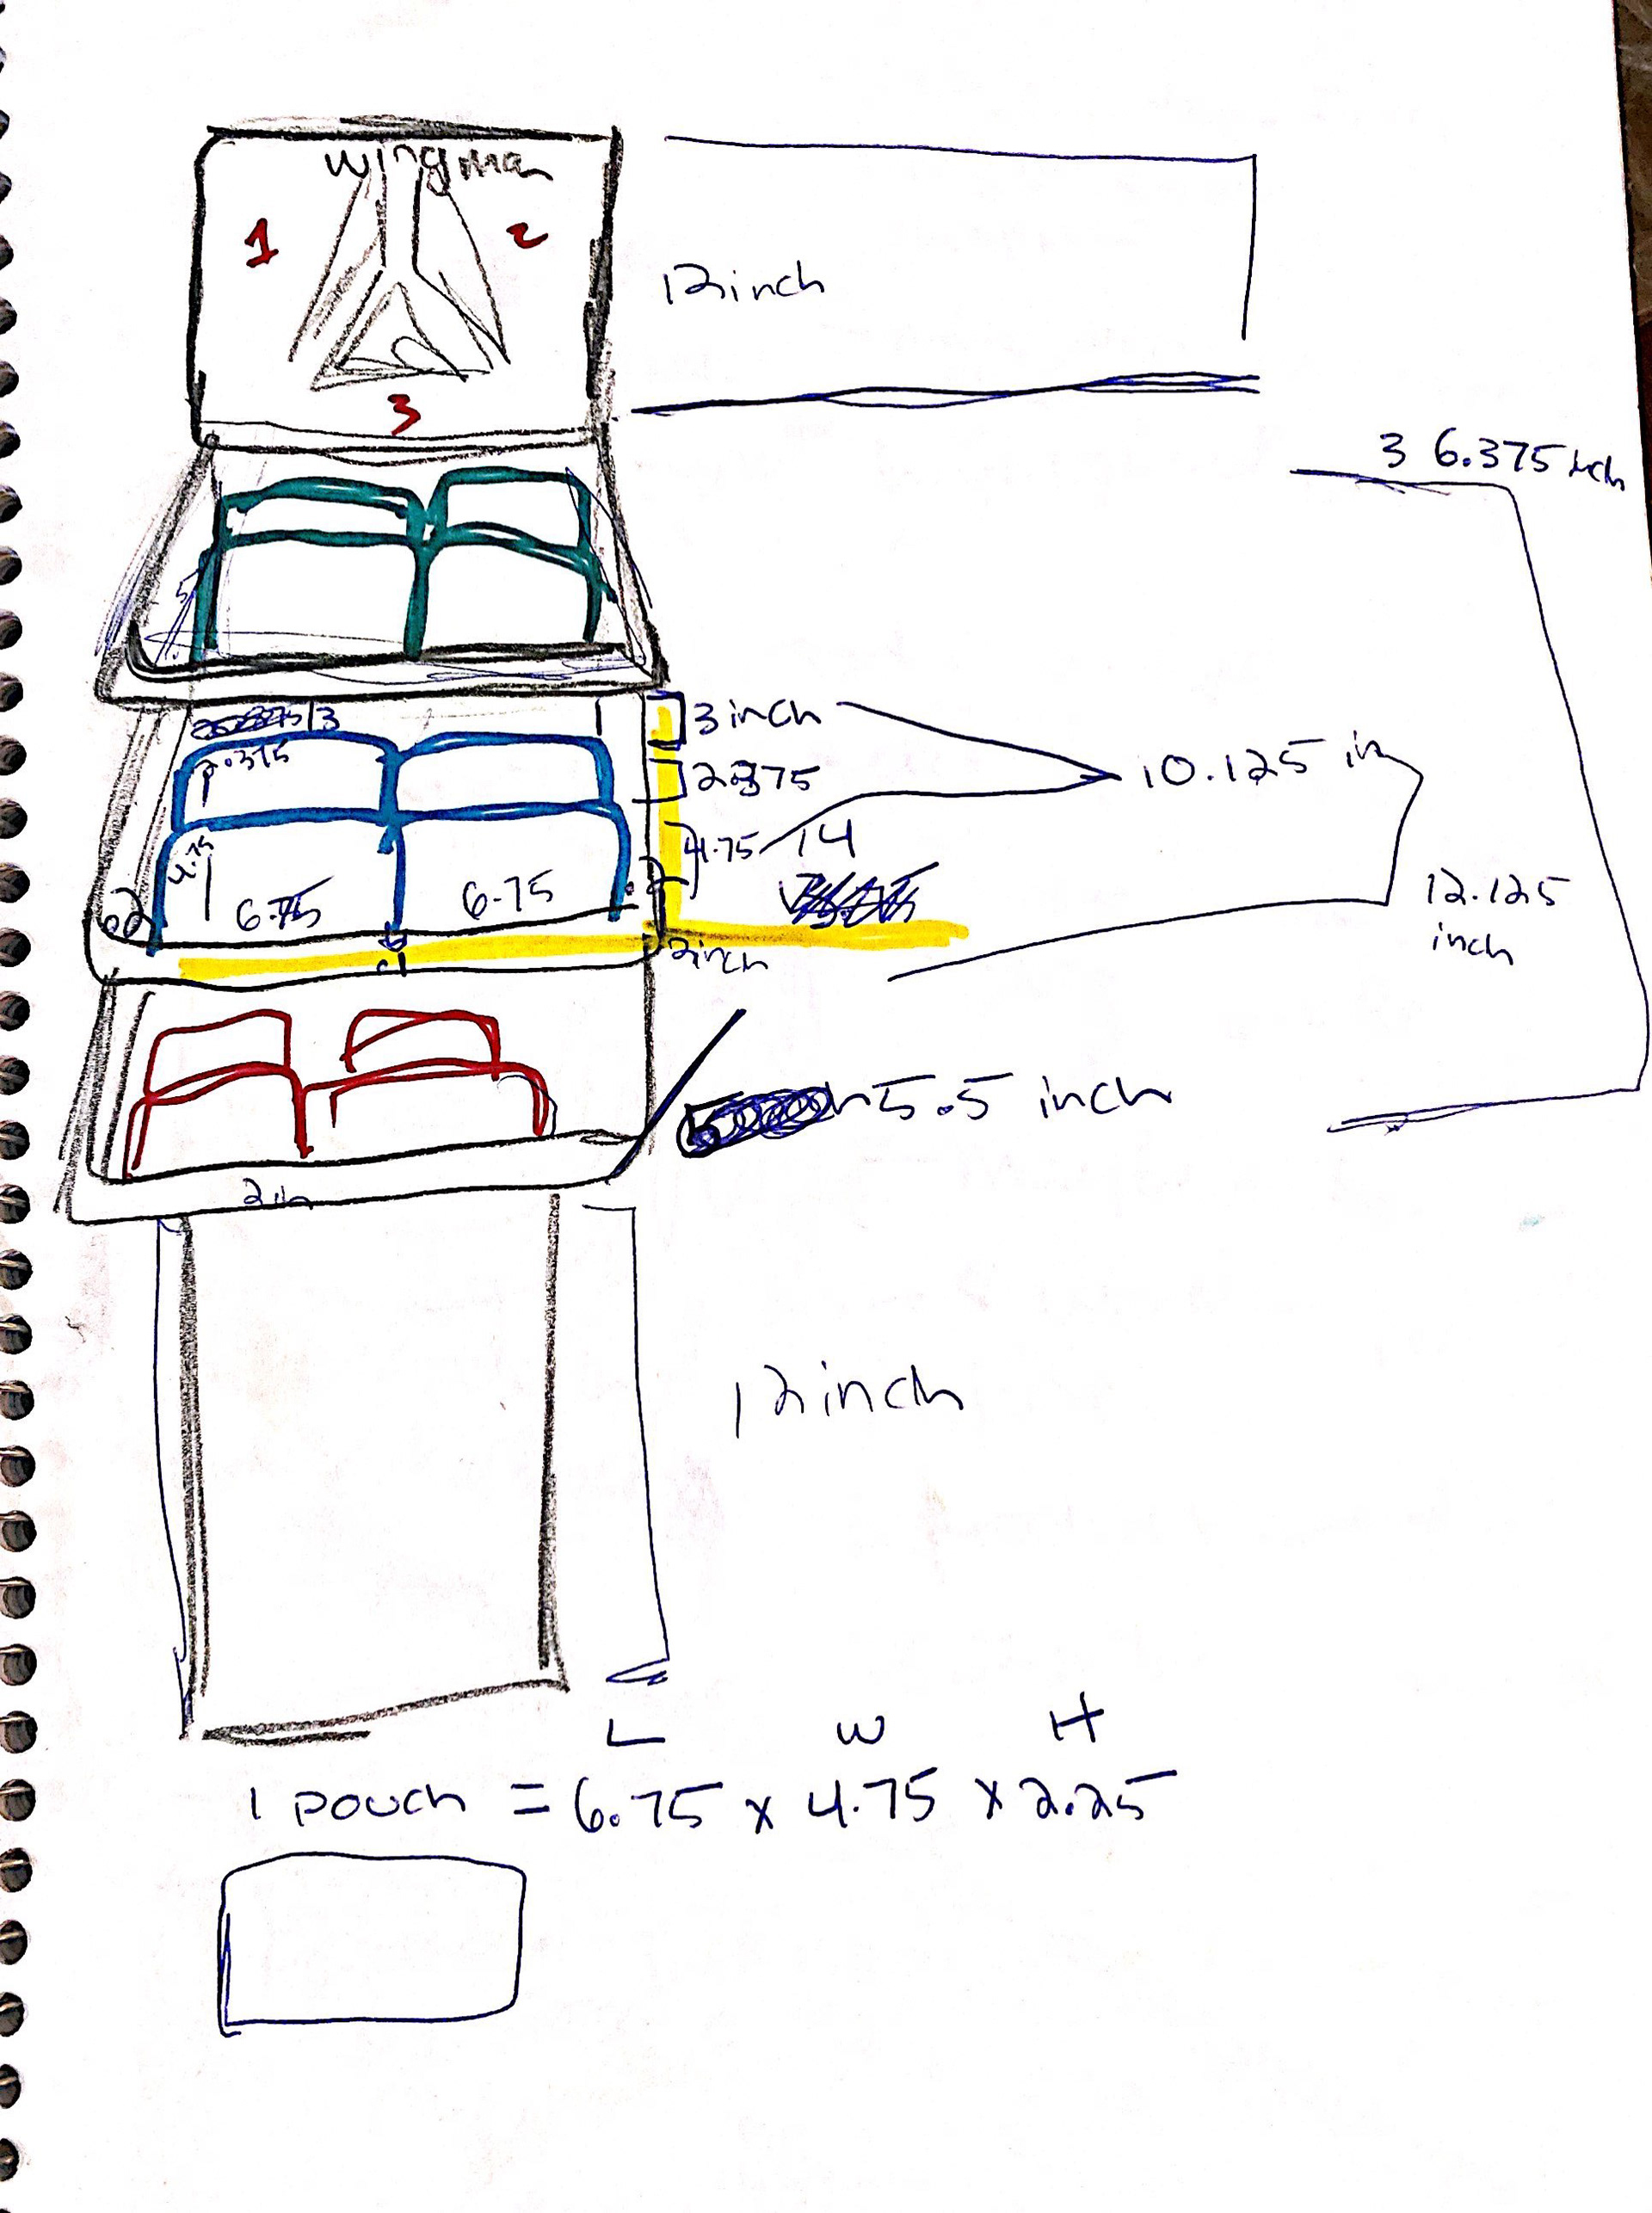 wingman
1
2
12 inch
3
3 6.375 inch
3
3 inch
2.375
2.375
10.125 in
4.75
4.75
14
6.75
6.75
12.125
inch
2 inch
5.5 inch
2 in
12 inch
L W H
1 pouch = 6.75 x 4.75 x 2.25